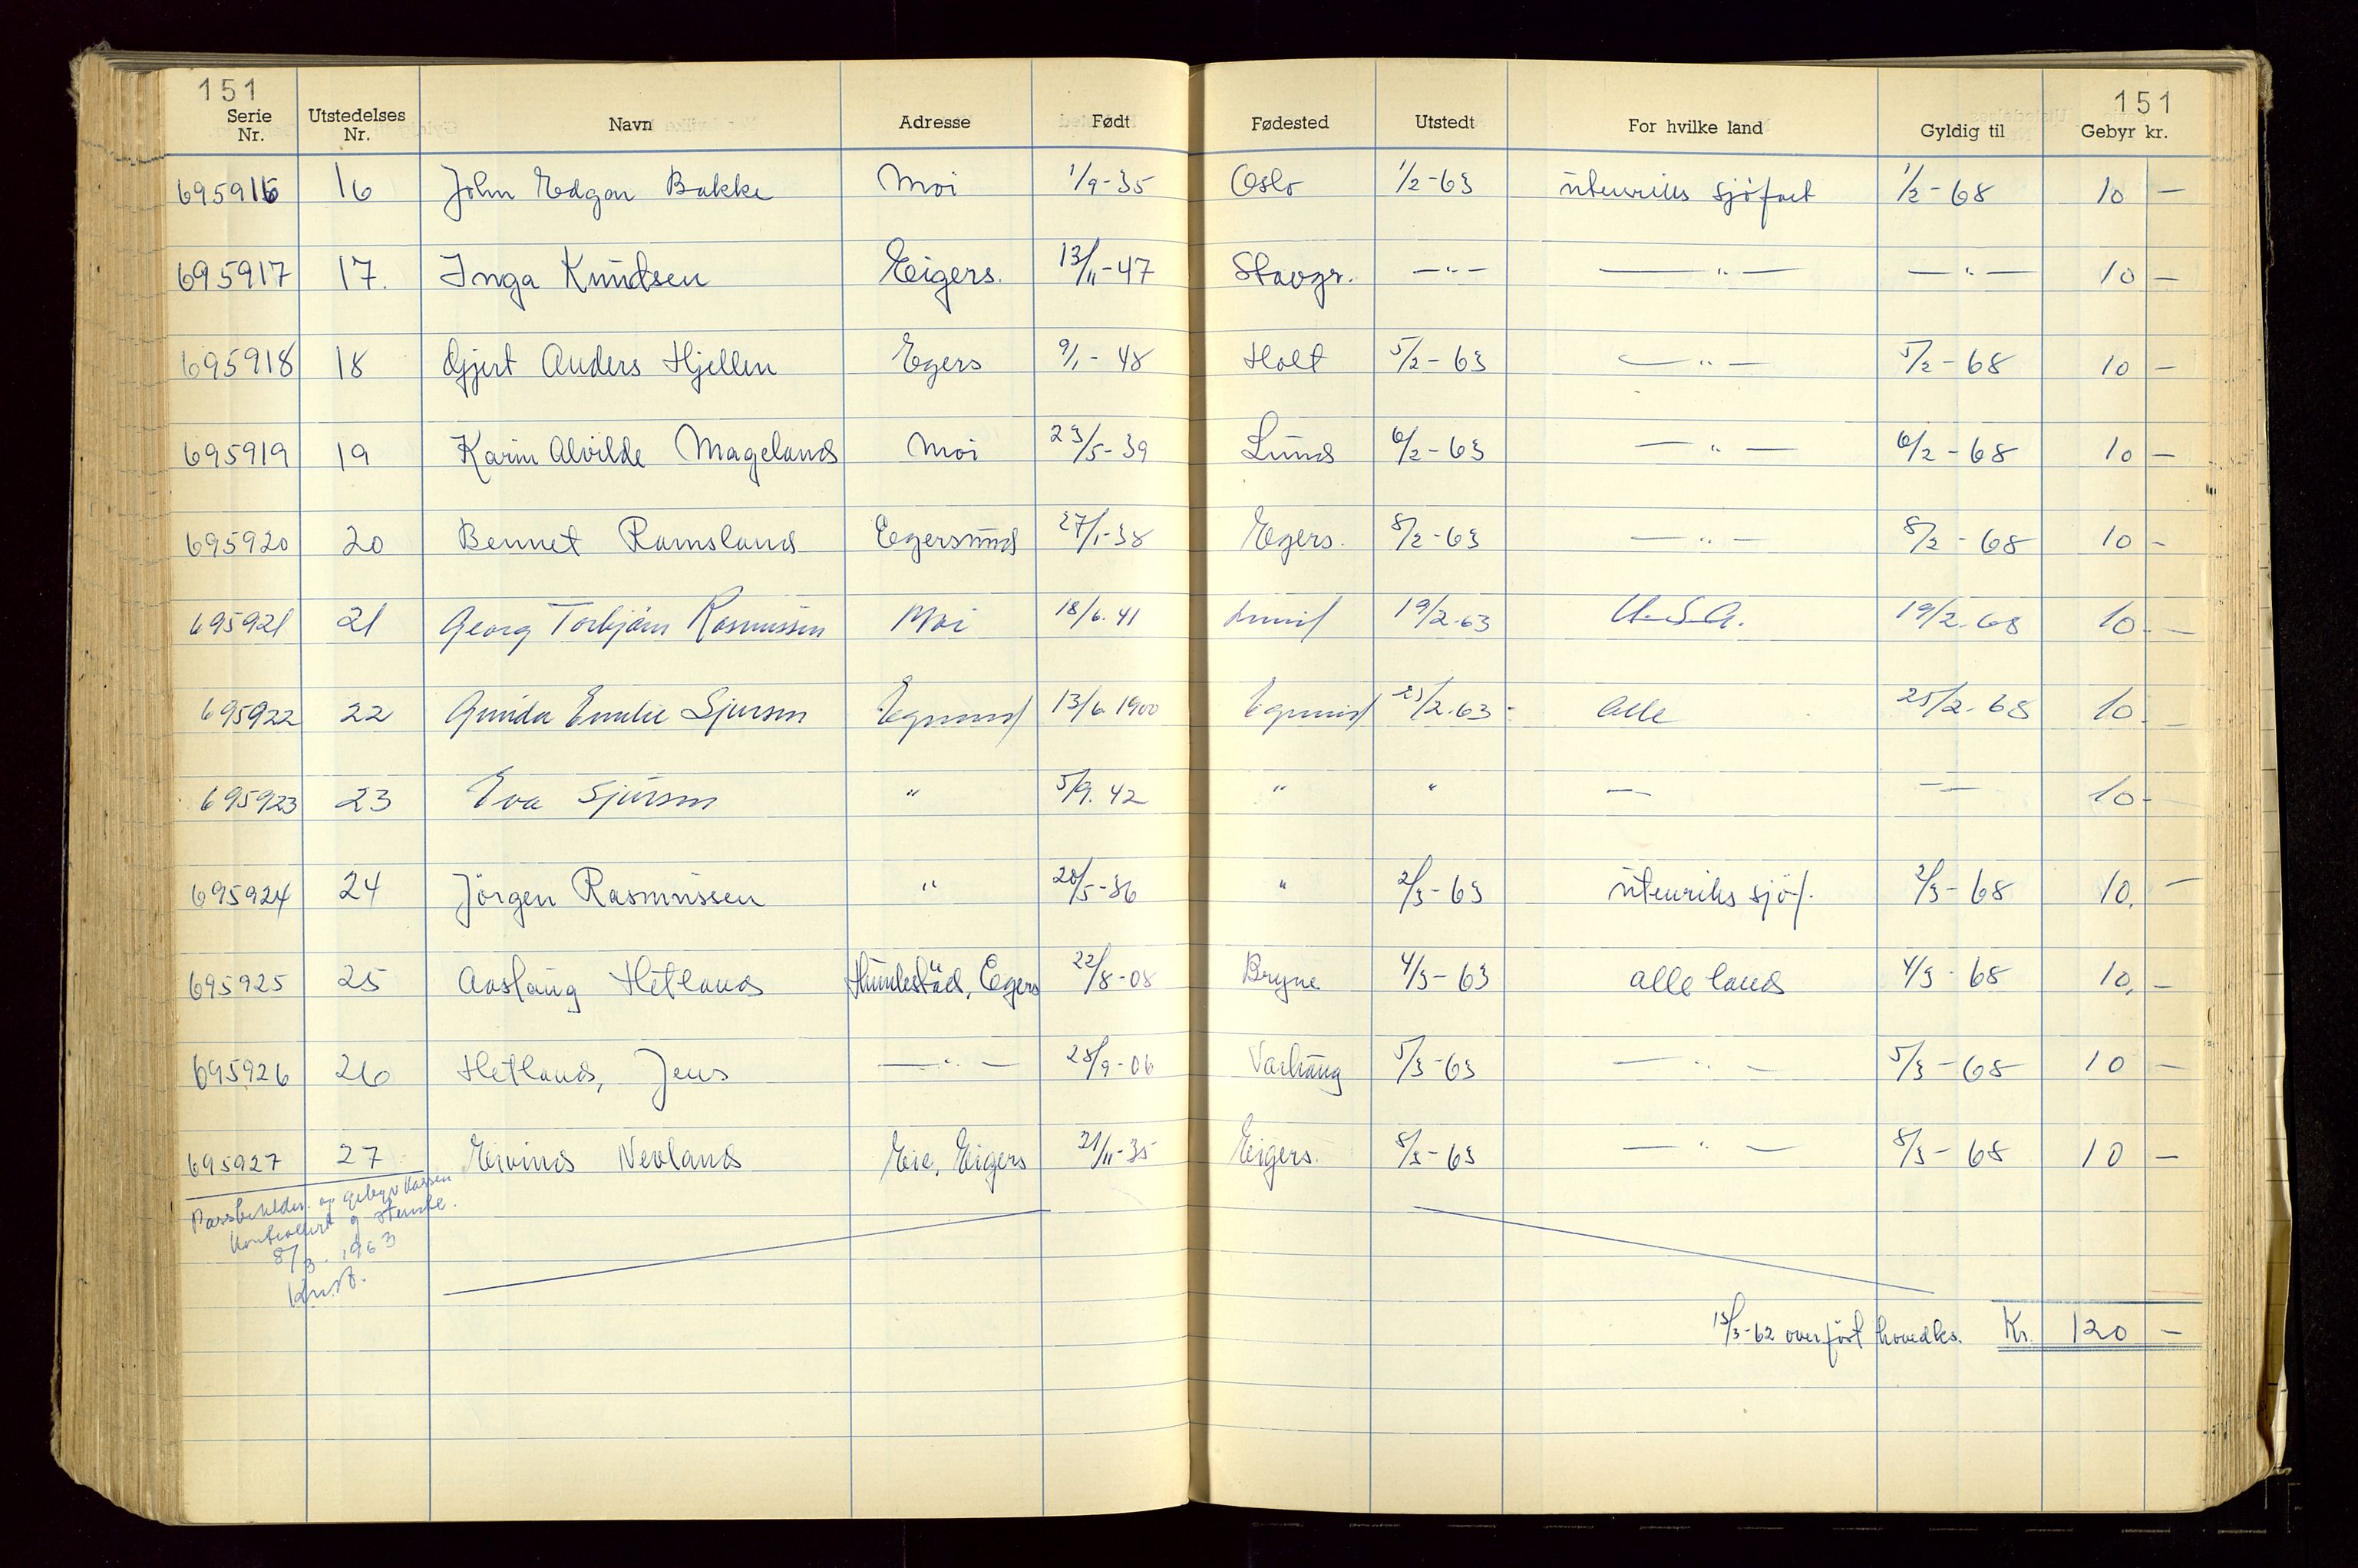 151 151
Serie Nr. Utstedelses Nr. Navn Adresse Født Fødested Utstedt For hvilke land Gyldig til Gebyr kr.
695916 16 John Edgar Bakke Moi 1/9-35 Oslo 1/2-63 utenriks sjöfart 1/2-68 10 —
695917 17. Inga Knudsen Eigers. 13/11-47 Stavgr. —"— —"— —"— 10 —
695918 18 Gjert Anders Hjellen Egers 9/1-48 Holt 5/2-63 —"— 5/2-68 10 —
695919 19 Karin Alvilde Mageland Moi 23/5-39 Lund 6/2-63 —"— 6/2-68 10 —
695920 20 Bennet Ramsland Egersund 27/1-38 Egers. 8/2-63 —"— 8/2-68 10 —
695921 21 Georg Torbjörn Rasmussen Moi 18/6.41 Lund 19/2.63 U.S.A. 19/2.68 10.—
695922 22 Gunda Emilie Sjursen Egersund 13/6.1900 Egersund 25/2.63 alle 25/2.68 10.—
695923 23 Eva Sjursen " 5/9.42 " " — — 10-
695924 24 Jörgen Rasmussen " 20/5-36 " 2/3-63 utenriks sjöf. 2/3-68 10. —
695925 25 Aaslaug Hetland Humlestad, Egers 22/8-08 Bryne 4/3-63 alle land 4/3-68 10, —
695926 26 Hetland, Jens —"— 28/9-06 Varhaug 5/3-63 —"— 5/3-68 10 —
695927 27 Eivind Nevland Eie, Eigers 21/11-35 Eigers. 8/3-63 —"— 8/3-68 10 —
Passbeholdn. og gebyr kassen
kontrollert og stemte.
8/3. 1963
13/3-62 overfört hovedks. Kr. 120 —